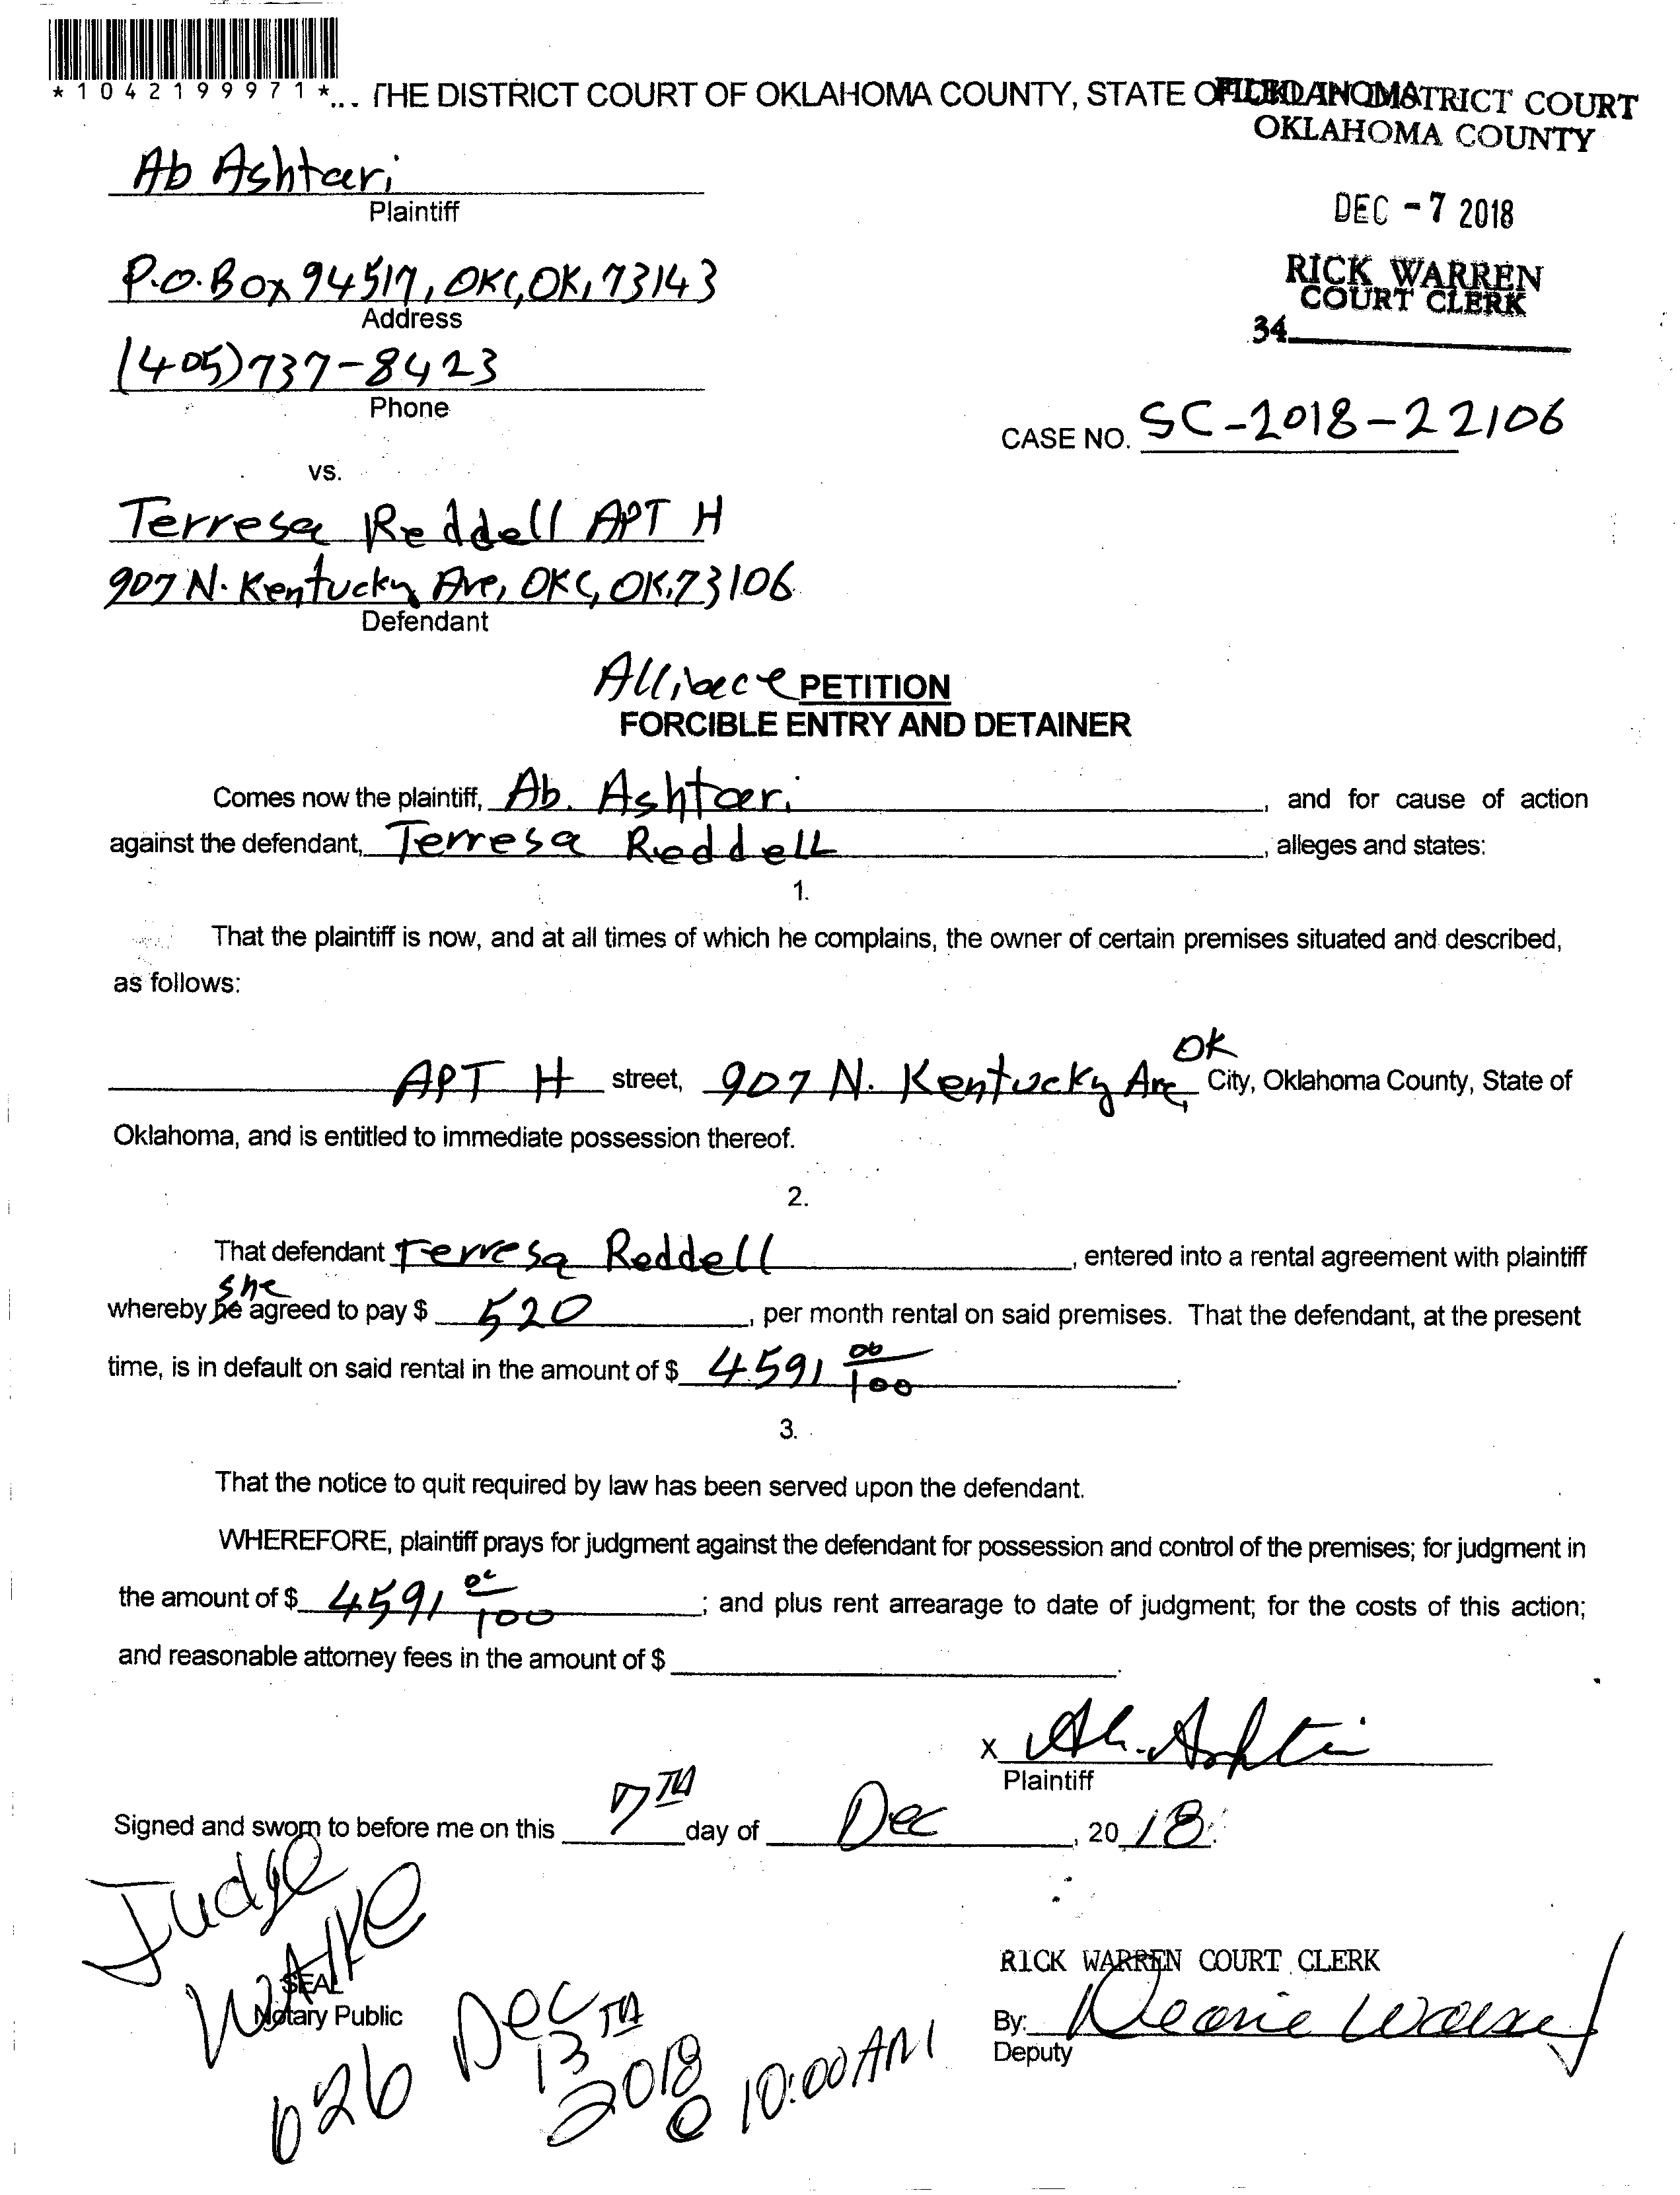 *1042199971*... THE DISTRICT COURT OF OKLAHOMA COUNTY, STATE OF OKLAHOMA
FILED IN DISTRICT COURT
OKLAHOMA COUNTY
Ab Ashtari
Plaintiff
DEC -7 2018
P.O. Box 94517, OKC, OK, 73143
Address
RICK WARREN
COURT CLERK
34
(405)737-8423
Phone
CASE NO. SC-2018-22106
vs.
Terresa Reddell APT H
907 N. Kentucky Ave, OKC, OK, 73106
Defendant
PETITION
FORCIBLE ENTRY AND DETAINER
Comes now the plaintiff, Ab. Ashtari, and for cause of action
against the defendant, Terresa Reddell, alleges and states:
1.
That the plaintiff is now, and at all times of which he complains, the owner of certain premises situated and described,
as follows:
OK
APT H street, 907 N. Kentucky Ave, City, Oklahoma County, State of
Oklahoma, and is entitled to immediate possession thereof.
2.
That defendant Terresa Reddell, entered into a rental agreement with plaintiff
she
whereby he agreed to pay $ 520, per month rental on said premises. That the defendant, at the present
time, is in default on said rental in the amount of $ 4591 00/100.
3.
That the notice to quit required by law has been served upon the defendant.
WHEREFORE, plaintiff prays for judgment against the defendant for possession and control of the premises; for judgment in
the amount of $ 4591 00/100; and plus rent arrearage to date of judgment; for the costs of this action;
and reasonable attorney fees in the amount of $
X Ab. Ashtari
Plaintiff
Signed and sworn to before me on this 7TH day of Dec, 2018.
Judge
Walke
SEAL
Notary Public
RICK WARREN COURT CLERK
By:
Deputy
626 Dec 13TH 2018 @ 10:00 AM